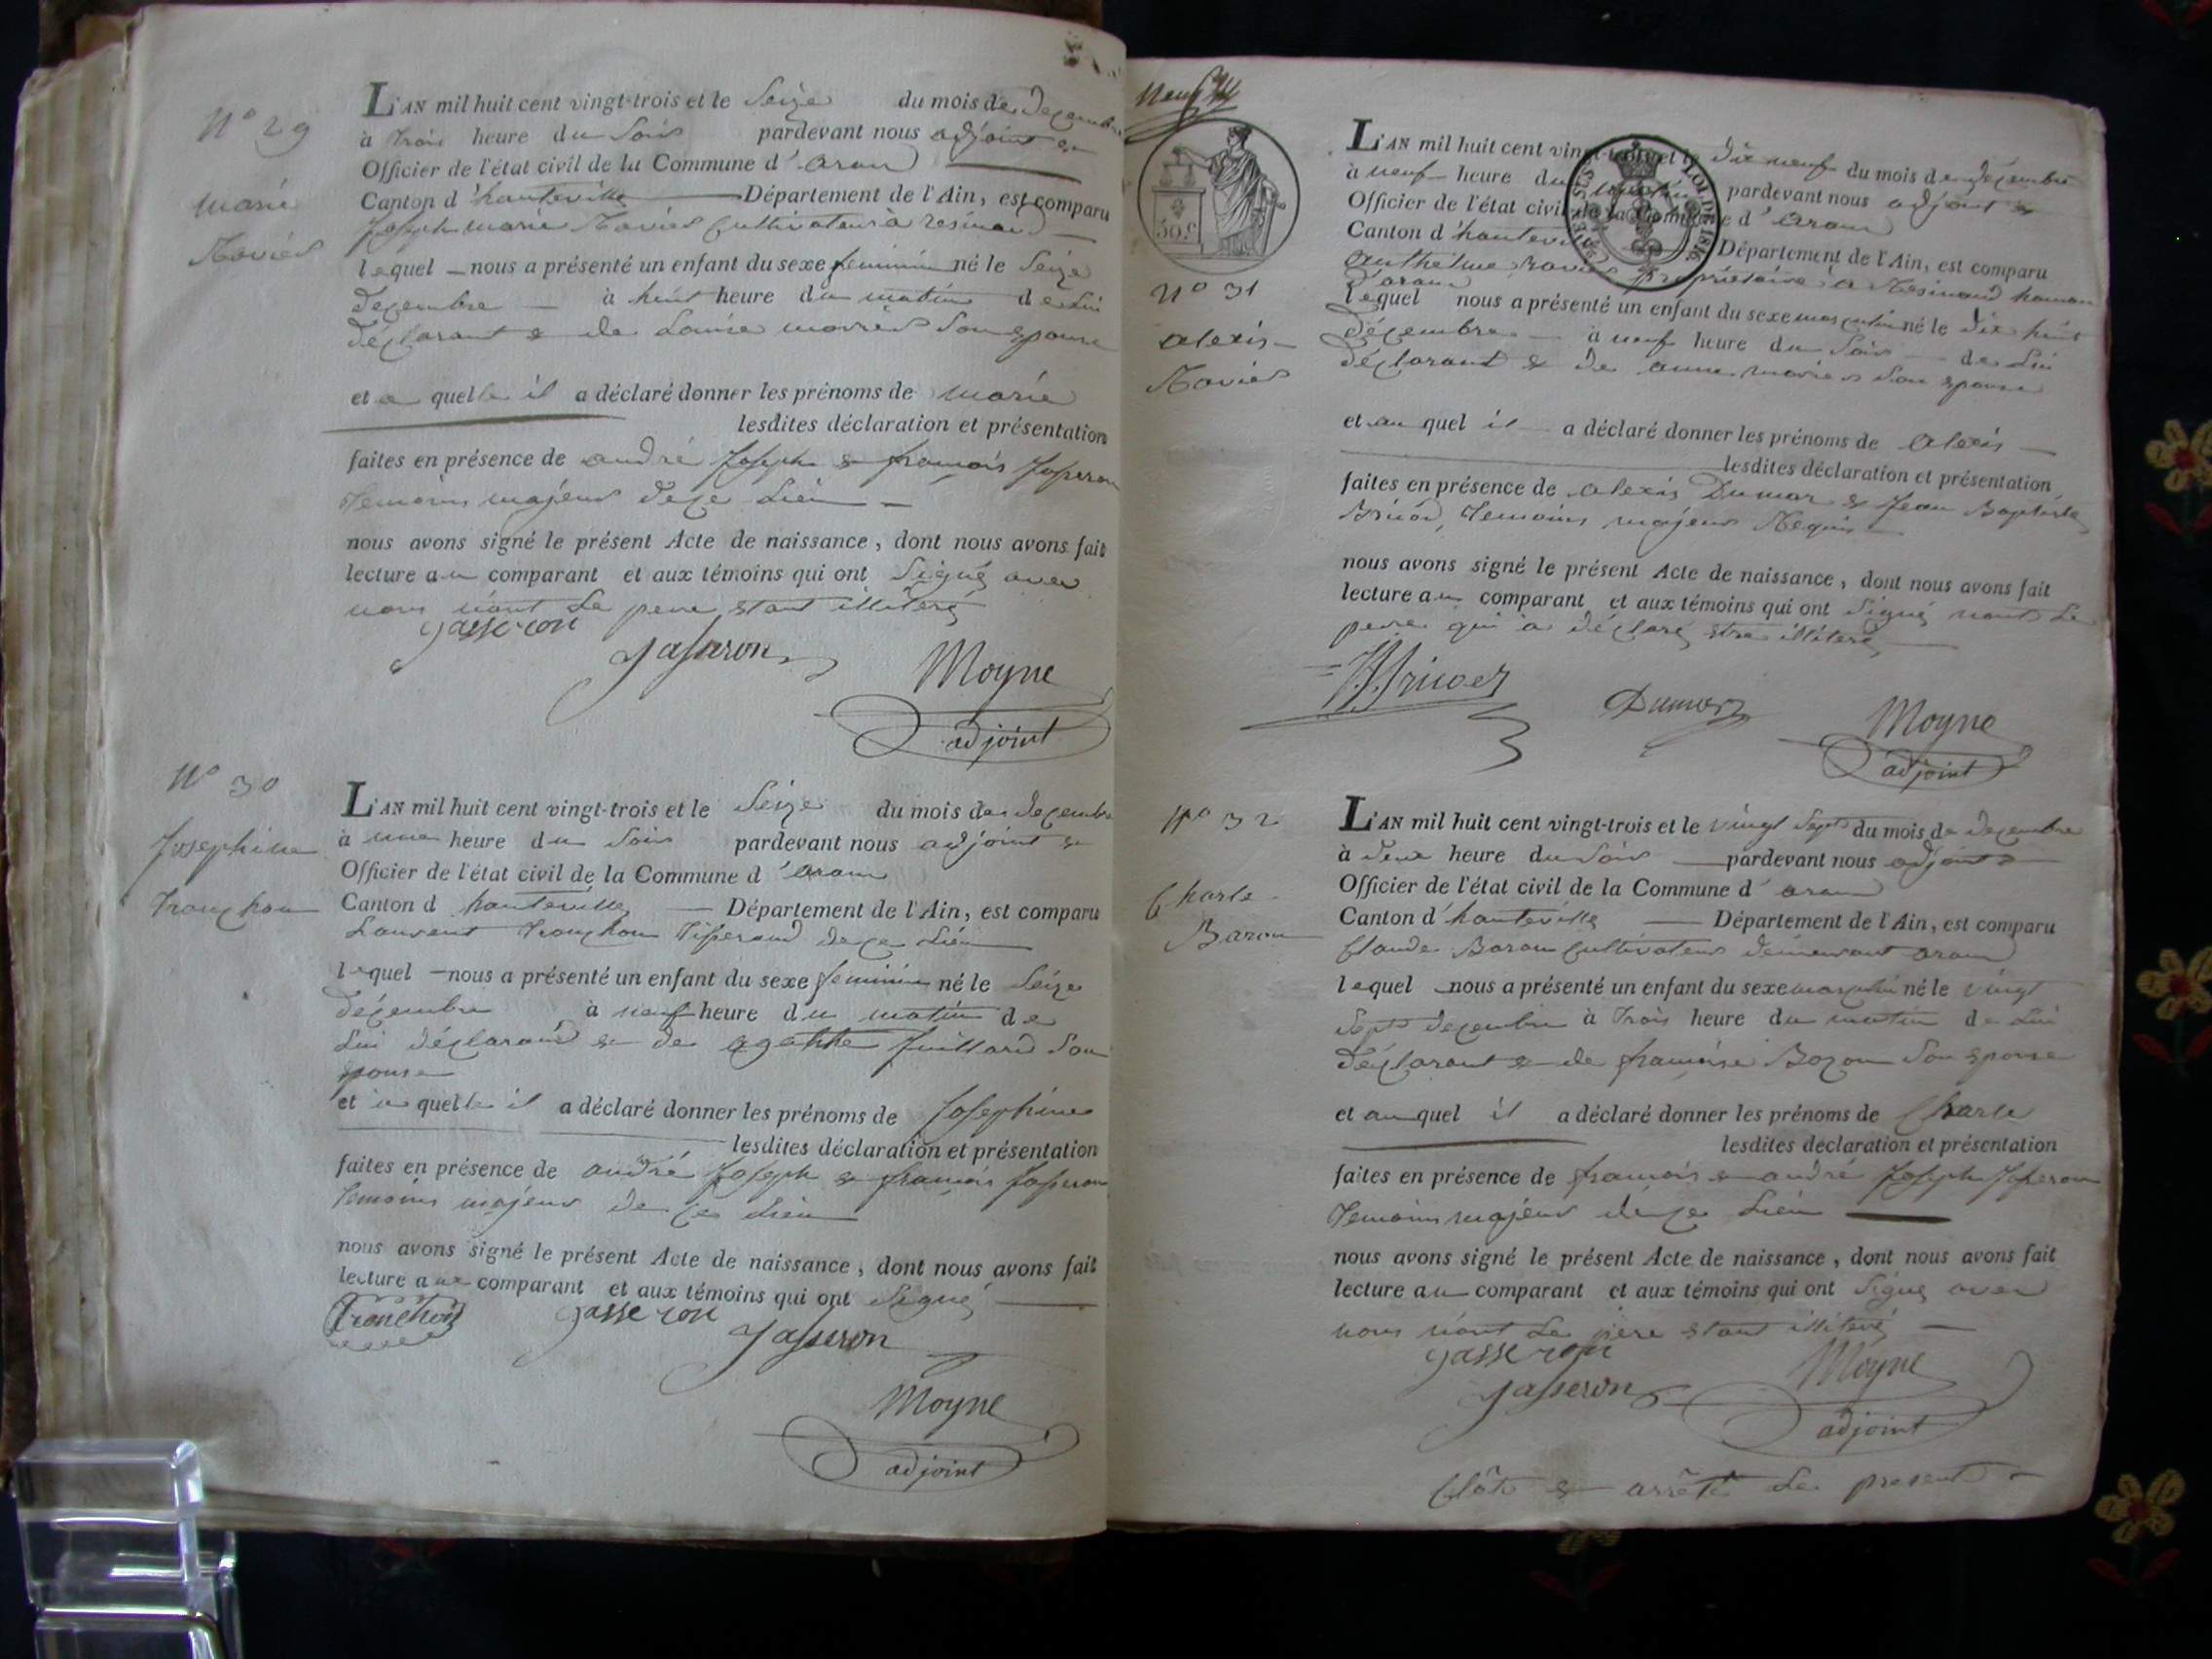 N° 29
marie
Raviér
L'AN mil huit cent vingt-trois et le Seize du mois de Decembre
à trois heure du Soir pardevant nous adjoint &
Officier de l'état civil de la Commune d'aran
Canton d'hauteville Département de l'Ain, est comparu
Joseph marie Raviér Cultivateur à resinand
lequel nous a présenté un enfant du sexe feminin né le Seize
Decembre à huit heure du matin de Lui
déclarant & de Louise Son épouse
et a quelle il a déclaré donner les prénoms de marie
lesdites déclaration et présentation
faites en présence de andré Joseph & françois Jasseron
temoins majeurs de ce Lieu
nous avons signé le présent Acte de naissance, dont nous avons fait
lecture au comparant et aux témoins qui ont Signé avec
nous n'ont Le pere étant illitéré
Jasseron
Jasseron
Moyne
adjoint
N° 30
Josephine
Tronchon
L'AN mil huit cent vingt-trois et le Seize du mois de Decembre
à une heure du Soir pardevant nous adjoint &
Officier de l'état civil de la Commune d'aran
Canton d hauteville Département de l'Ain, est comparu
Laurent Tronchon Tisserand de ce Lieu
lequel nous a présenté un enfant du sexe feminin né le Seize
Décembre à neuf heure du matin de
Lui déclarant & de agathe Juillard Son
épouse
et a quelle il a déclaré donner les prénoms de Josephine
lesdites déclaration et présentation
faites en présence de andré Joseph & françois Jasseron
temoins majeurs de ce Lieu
nous avons signé le présent Acte de naissance, dont nous avons fait
lecture aux comparant et aux témoins qui ont Signé
Tronchon
Jasseron
Jasseron
Moyne
adjoint
50c
LOI DE 1816
N° 31
alexis
Raviér
L'AN mil huit cent vingt-trois et le dix neuf du mois de décembre
à neuf heure du matin pardevant nous adjoint &
Officier de l'état civil de la Commune d'aran
Canton d'hauteville Département de l'Ain, est comparu
anthelme Ravier propriétaire à Résinand hameau
d'aran
lequel nous a présenté un enfant du sexe masculin né le dix huit
décembre à neuf heure du Soir de Lui
déclarant & de anne Son épouse
et au quel il a déclaré donner les prénoms de alexis
lesdites déclaration et présentation
faites en présence de alexis Dumar & Jean Baptiste
temoins majeurs Requis
nous avons signé le présent Acte de naissance, dont nous avons fait
lecture au comparant et aux témoins qui ont Signé nont Le
pere qui a déclaré être illitéré
Moyne
adjoint
N° 32
Charle
Baron
L'AN mil huit cent vingt-trois et le vingt Sept du mois de decembre
à deux heure du Soir pardevant nous adjoint &
Officier de l'état civil de la Commune d'aran
Canton d'hauteville Département de l'Ain, est comparu
Claude Baron Cultivateur demeurant aran
lequel nous a présenté un enfant du sexe masculin né le vingt
Sept decembre à trois heure du matin de Lui
déclarant & de françoise Bozon Son épouse
et au quel il a déclaré donner les prénoms de Charle
lesdites déclaration et présentation
faites en présence de françois & andré Joseph Jasseron
temoins majeurs de ce Lieu
nous avons signé le présent Acte de naissance, dont nous avons fait
lecture au comparant et aux témoins qui ont Signé avec
nous n'ont Le père étant illitéré
Jasseron
Jasseron
Moyne
adjoint
Clôté & arrêté Le present